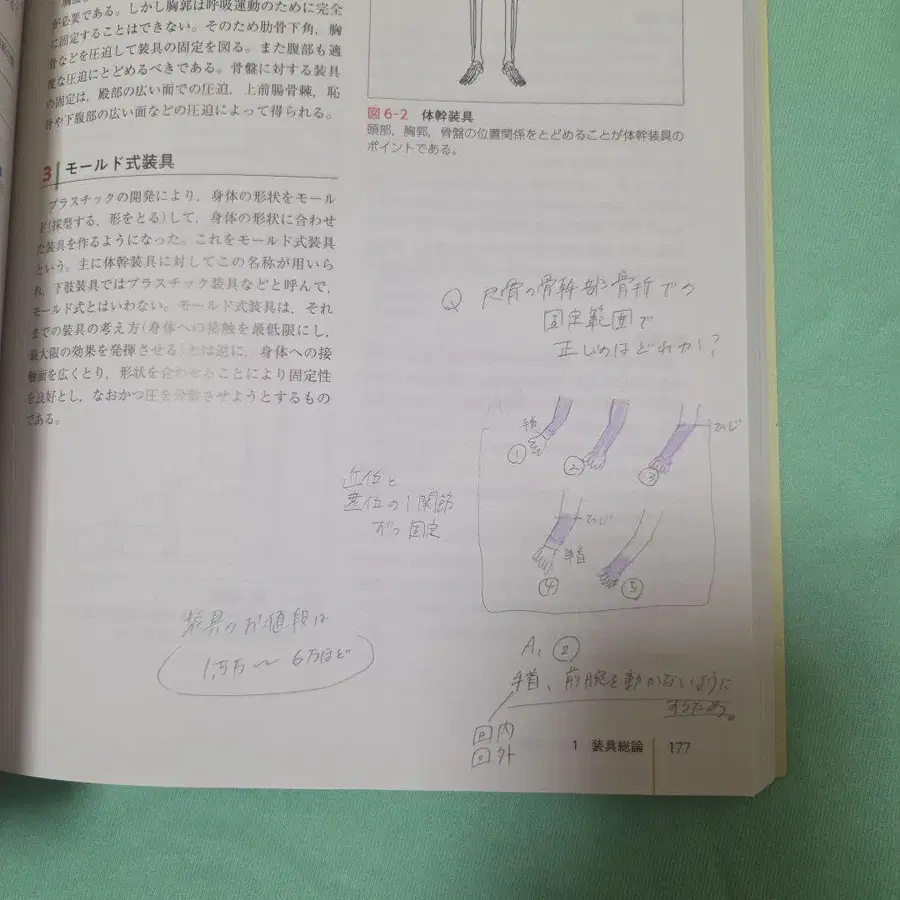 が必要である。しかし胸郭は呼吸運動のために完全
に固定することはできない。そのため肋骨下角，胸
骨などを圧迫して装具の固定を図る。また腹部も適
度な圧迫にとどめるべきである。骨盤に対する装具
の固定は，殿部の広い面での圧迫，上前腸骨棘，恥
骨や下腹部の広い面などの圧迫によって得られる。
3 モールド式装具
プラスチックの開発により，身体の形状をモール
ド(採型する，形をとる)して，身体の形状に合わせ
た装具を作るようになった。これをモールド式装具
という。主に体幹装具に対してこの名称が用いら
れ，下肢装具ではプラスチック装具などと呼んで，
モールド式とはいわない。モールド式装具は，それ
までの装具の考え方(身体への接触を最低限にし，
最大限の効果を発揮させる)とは逆に，身体への接
触面を広くとり，形状を合わせることにより固定性
を良好とし，なおかつ圧を分散させようとするもの
である。
図6-2 体幹装具
頭部，胸郭，骨盤の位置関係をとどめることが体幹装具の
ポイントである。
Q 尺骨の骨幹部骨折での
固定範囲で
正しいのはどれか?
手首
①
②
③
ひじ
ひじ
手首
④
⑤
近位と
遠位の1関節
ずつ固定
装具のお値段は
1.5万〜6万ほど
A、②
手首、前腕を動かないように
するため。
回内
回外
1 装具総論 177